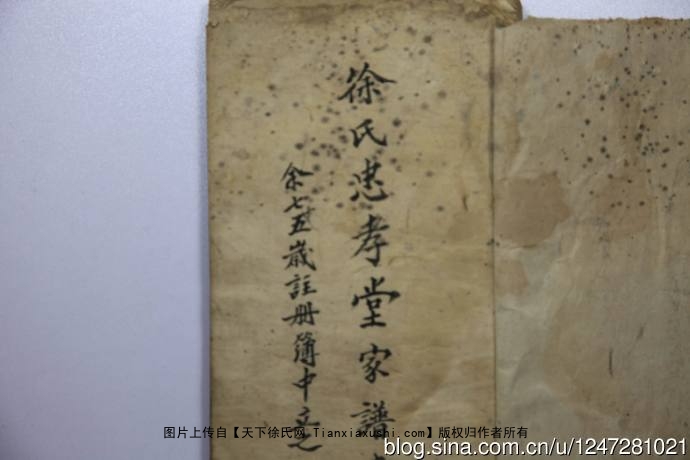 徐氏忠孝堂家譜
余七五歲註册簿中立之
图片上传自【天下徐氏网 Tianxiaxushi.com】版权归作者所有
blog.sina.com.cn/u/1247281021